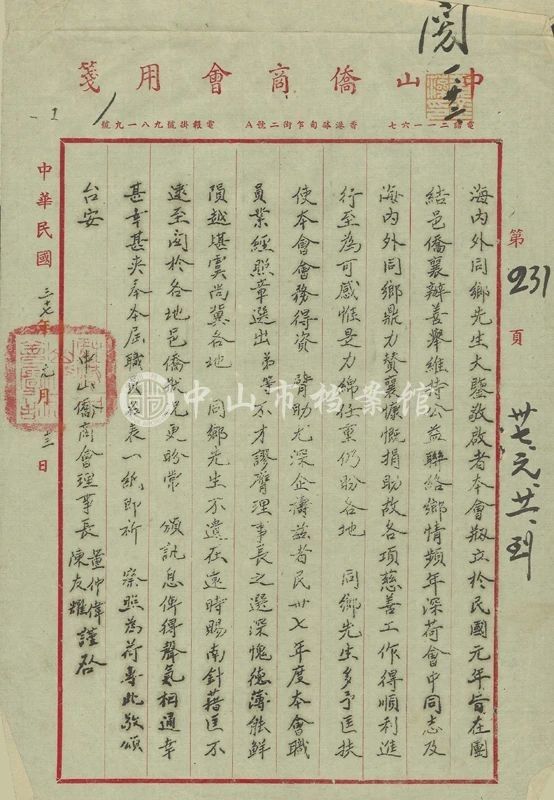 閱
中山僑商會用箋
電話二一一六七
香港砵甸乍街二號A
電報掛號九八一九號
1
第231頁
卅七.元.廿.到
海內外同鄉先生大鑒敬啟者本會籾立於民國元年旨在團
結邑僑襄辦善舉維持公益聯絡鄉情頻年深荷會中同志及
海內外同鄉鼎力贊襄慷慨捐助故各項慈善工作得順利進
行至為可感惟是力綿任重仍盼各地 同鄉先生多予匡扶
使本會會務得資 臂助尤深企濤茲者民卅七年度本會職
員業經照章選出弟等不才謬膺理事長之選深愧德薄能鮮
隕越堪虞尚冀各地 同鄉先生不遺在遠時賜南針藉匡不
逮至關於各地邑僑狀况更盼常 頒訊息俾得聲氣相通幸
甚幸甚夾奉本屆職員名表一紙即祈 察照為荷專此敬頌
台安
中山僑商會理事長
黃仲偉
陳友耀
謹啓
中華民國三七年元月三日
中山市档案馆